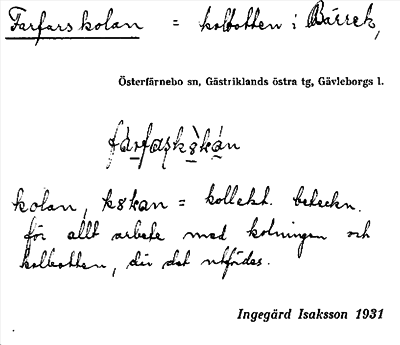 Farfarskolan = kolbotten i Bärrek,
Österfärnebo sn, Gästriklands östra tg, Gävleborgs l.
fàrfaṣkskán
kolan, kskan = kollekt. beteckn.
för allt arbete med kolningen och
kolbotten, där det utfördes.
Ingegärd Isaksson 1931